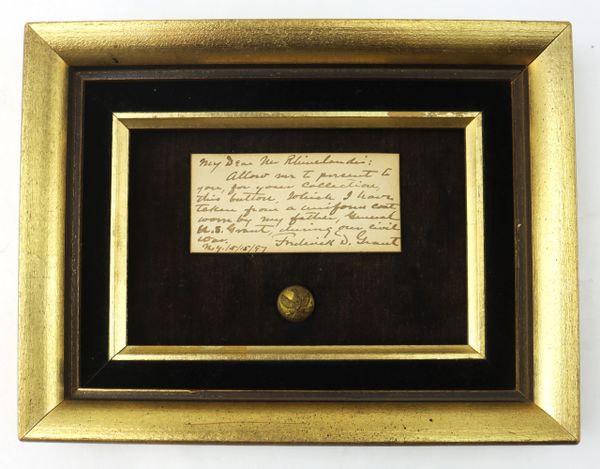 My Dear Mr Rhinelander:
Allow me to present to
you, for your collection,
this button, which I have
taken from a uniform coat
worn by my father, General
U.S. Grant, during our civil
war. Frederick D. Grant
N.Y. /15/97